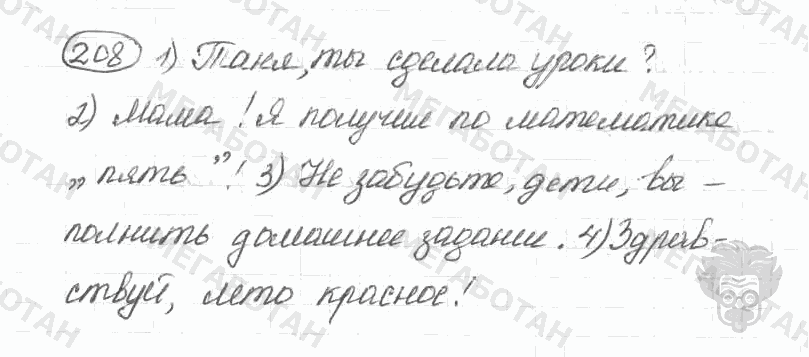 208 1) Таня, ты сделала уроки?
2) Мама! Я получил по математике
„пять"! 3) Не забудьте, дети, вы-
полнить домашнее задание. 4) Здрав-
ствуй, лето красное!
МЕГАБОТАН